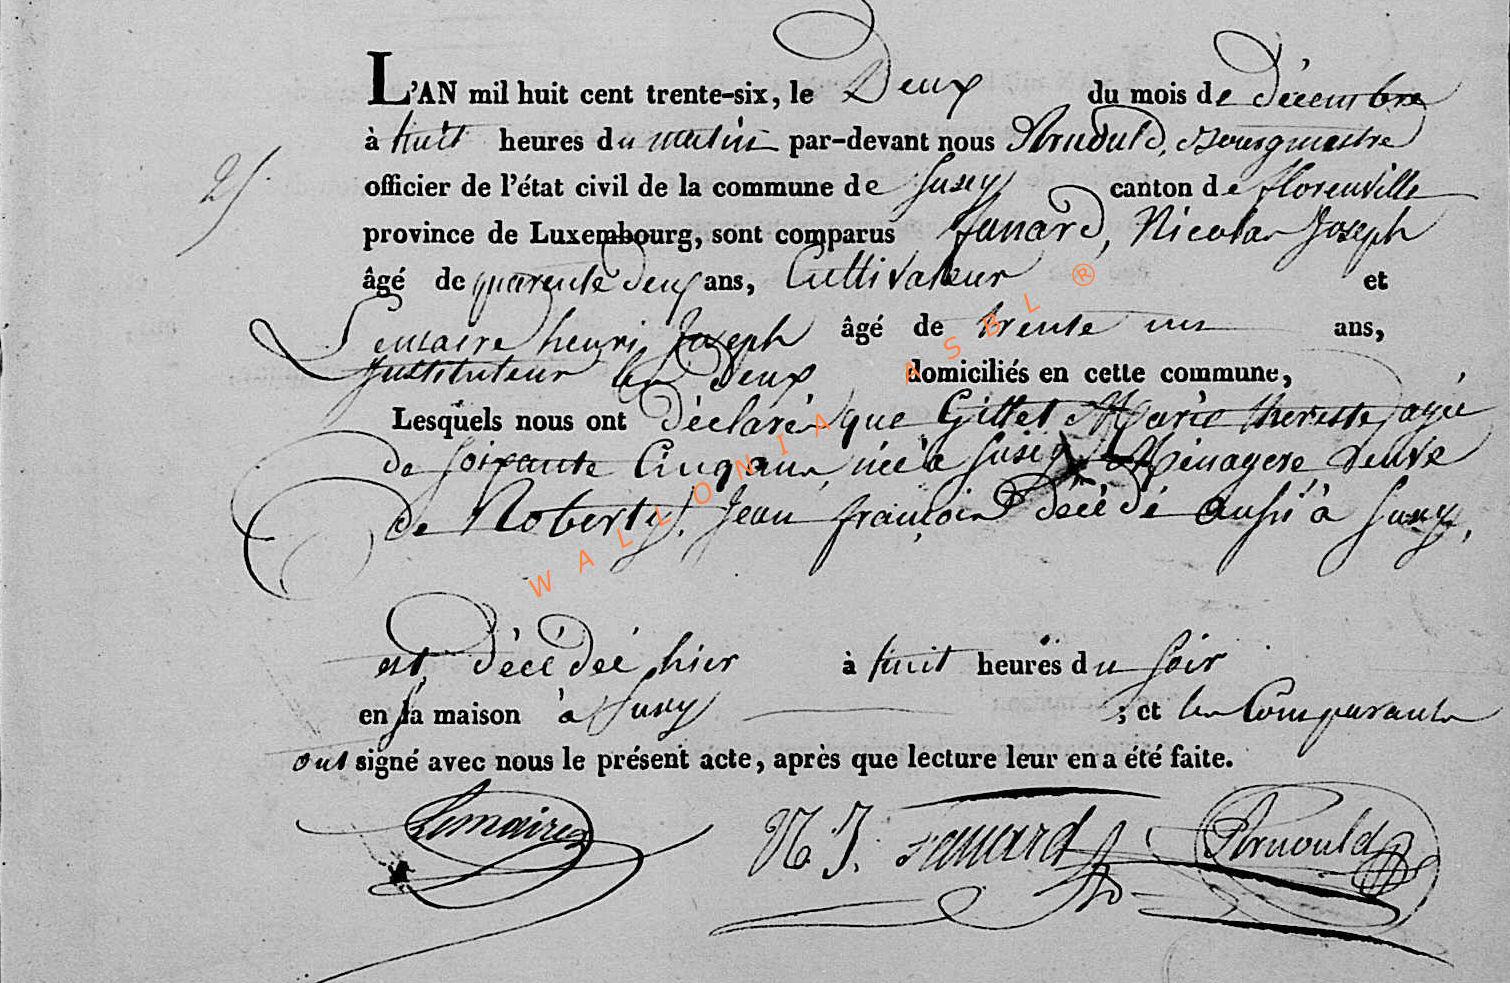 L'AN mil huit cent trente-six, le Deux du mois de décembre
à huit heures du matin par-devant nous Arnould, Bourgmestre
25
officier de l'état civil de la commune de Suxy canton de florenville
province de Luxembourg, sont comparus fanard, Nicolas Joseph
âgé de quarente deux ans, Cultivateur et
Lemaire henri Joseph âgé de trente un ans,
Instituteur les deux domiciliés en cette commune,
Lesquels nous ont déclaré que Gillet Marie theresse agée
de soixante Cinq ans, née à Suxy Ménagere veuve
de Noberty, Jean françois décédé aussi à Suxy,
est décédée hier à huit heures du soir
en sa maison à Suxy ; et les Comparants
ont signé avec nous le présent acte, après que lecture leur en a été faite.
Lemaire N. J. fanard Arnould
WALLONIA ASBL ®